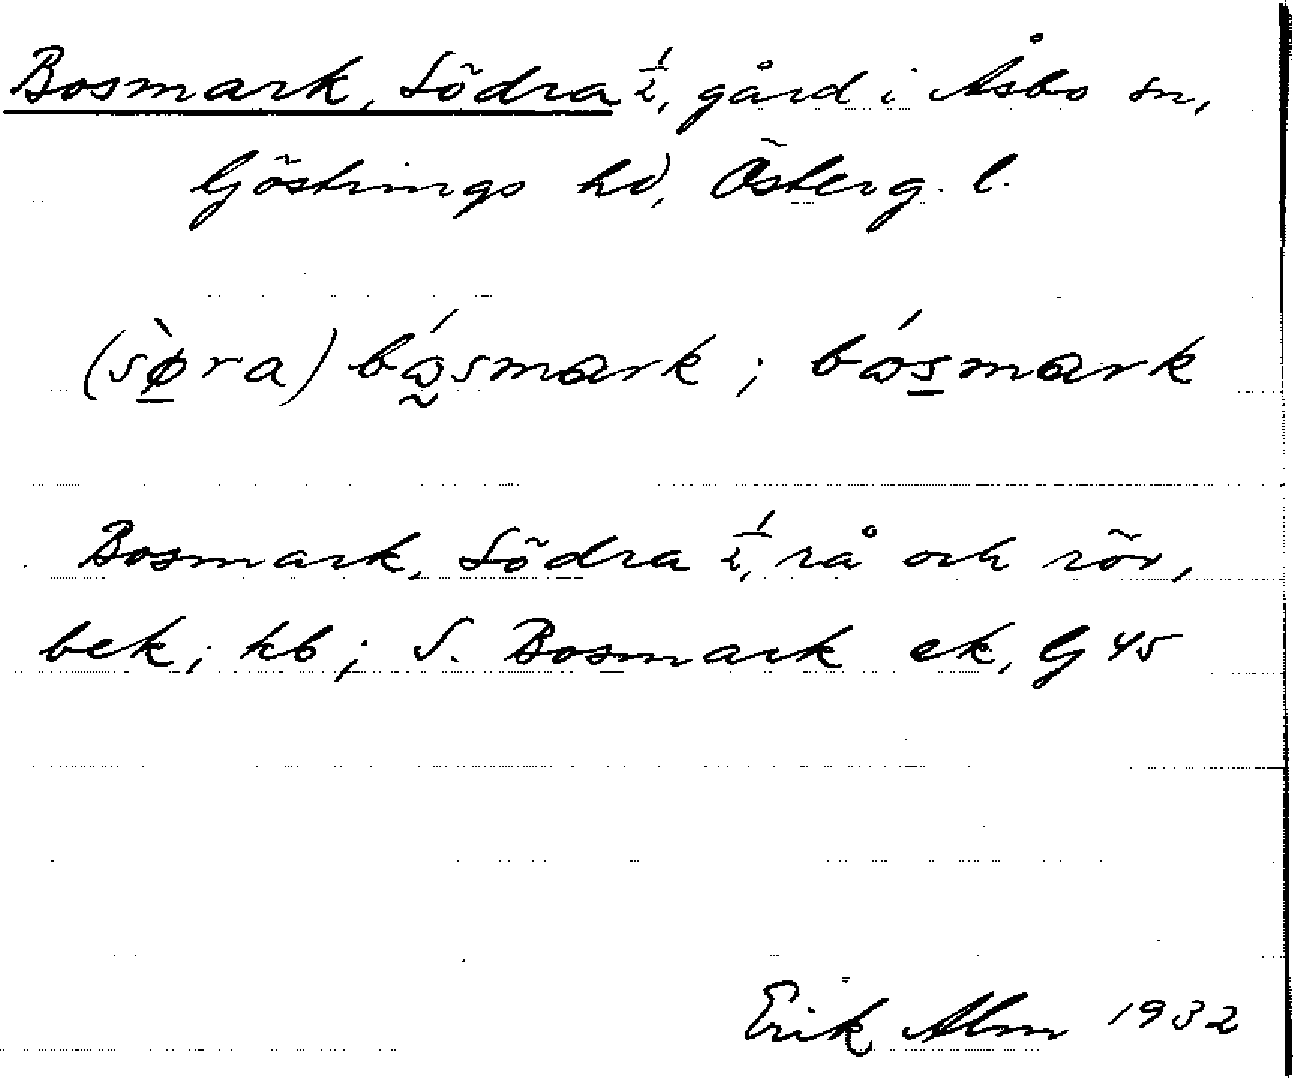 Bosmark, Södra ½, gård i Åsbo sn,
Göstrings hd, Österg. l.
(sø̀ra) bɷ́smark ; bɷ́smark
Bosmark, Södra ½, rå och rör,
bek; kb; S. Bosmark ek, G 45
Erik Alm 1932